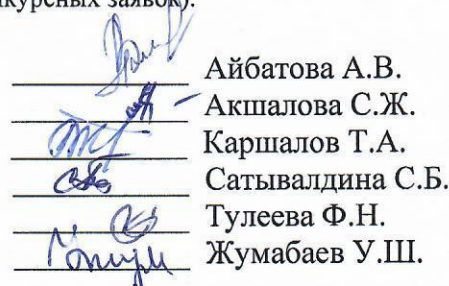 курсных заявок).
Айбатова А.В.
Акшалова С.Ж.
Каршалов Т.А.
Сатывалдина С.Б.
Тулеева Ф.Н.
Жумабаев У.Ш.